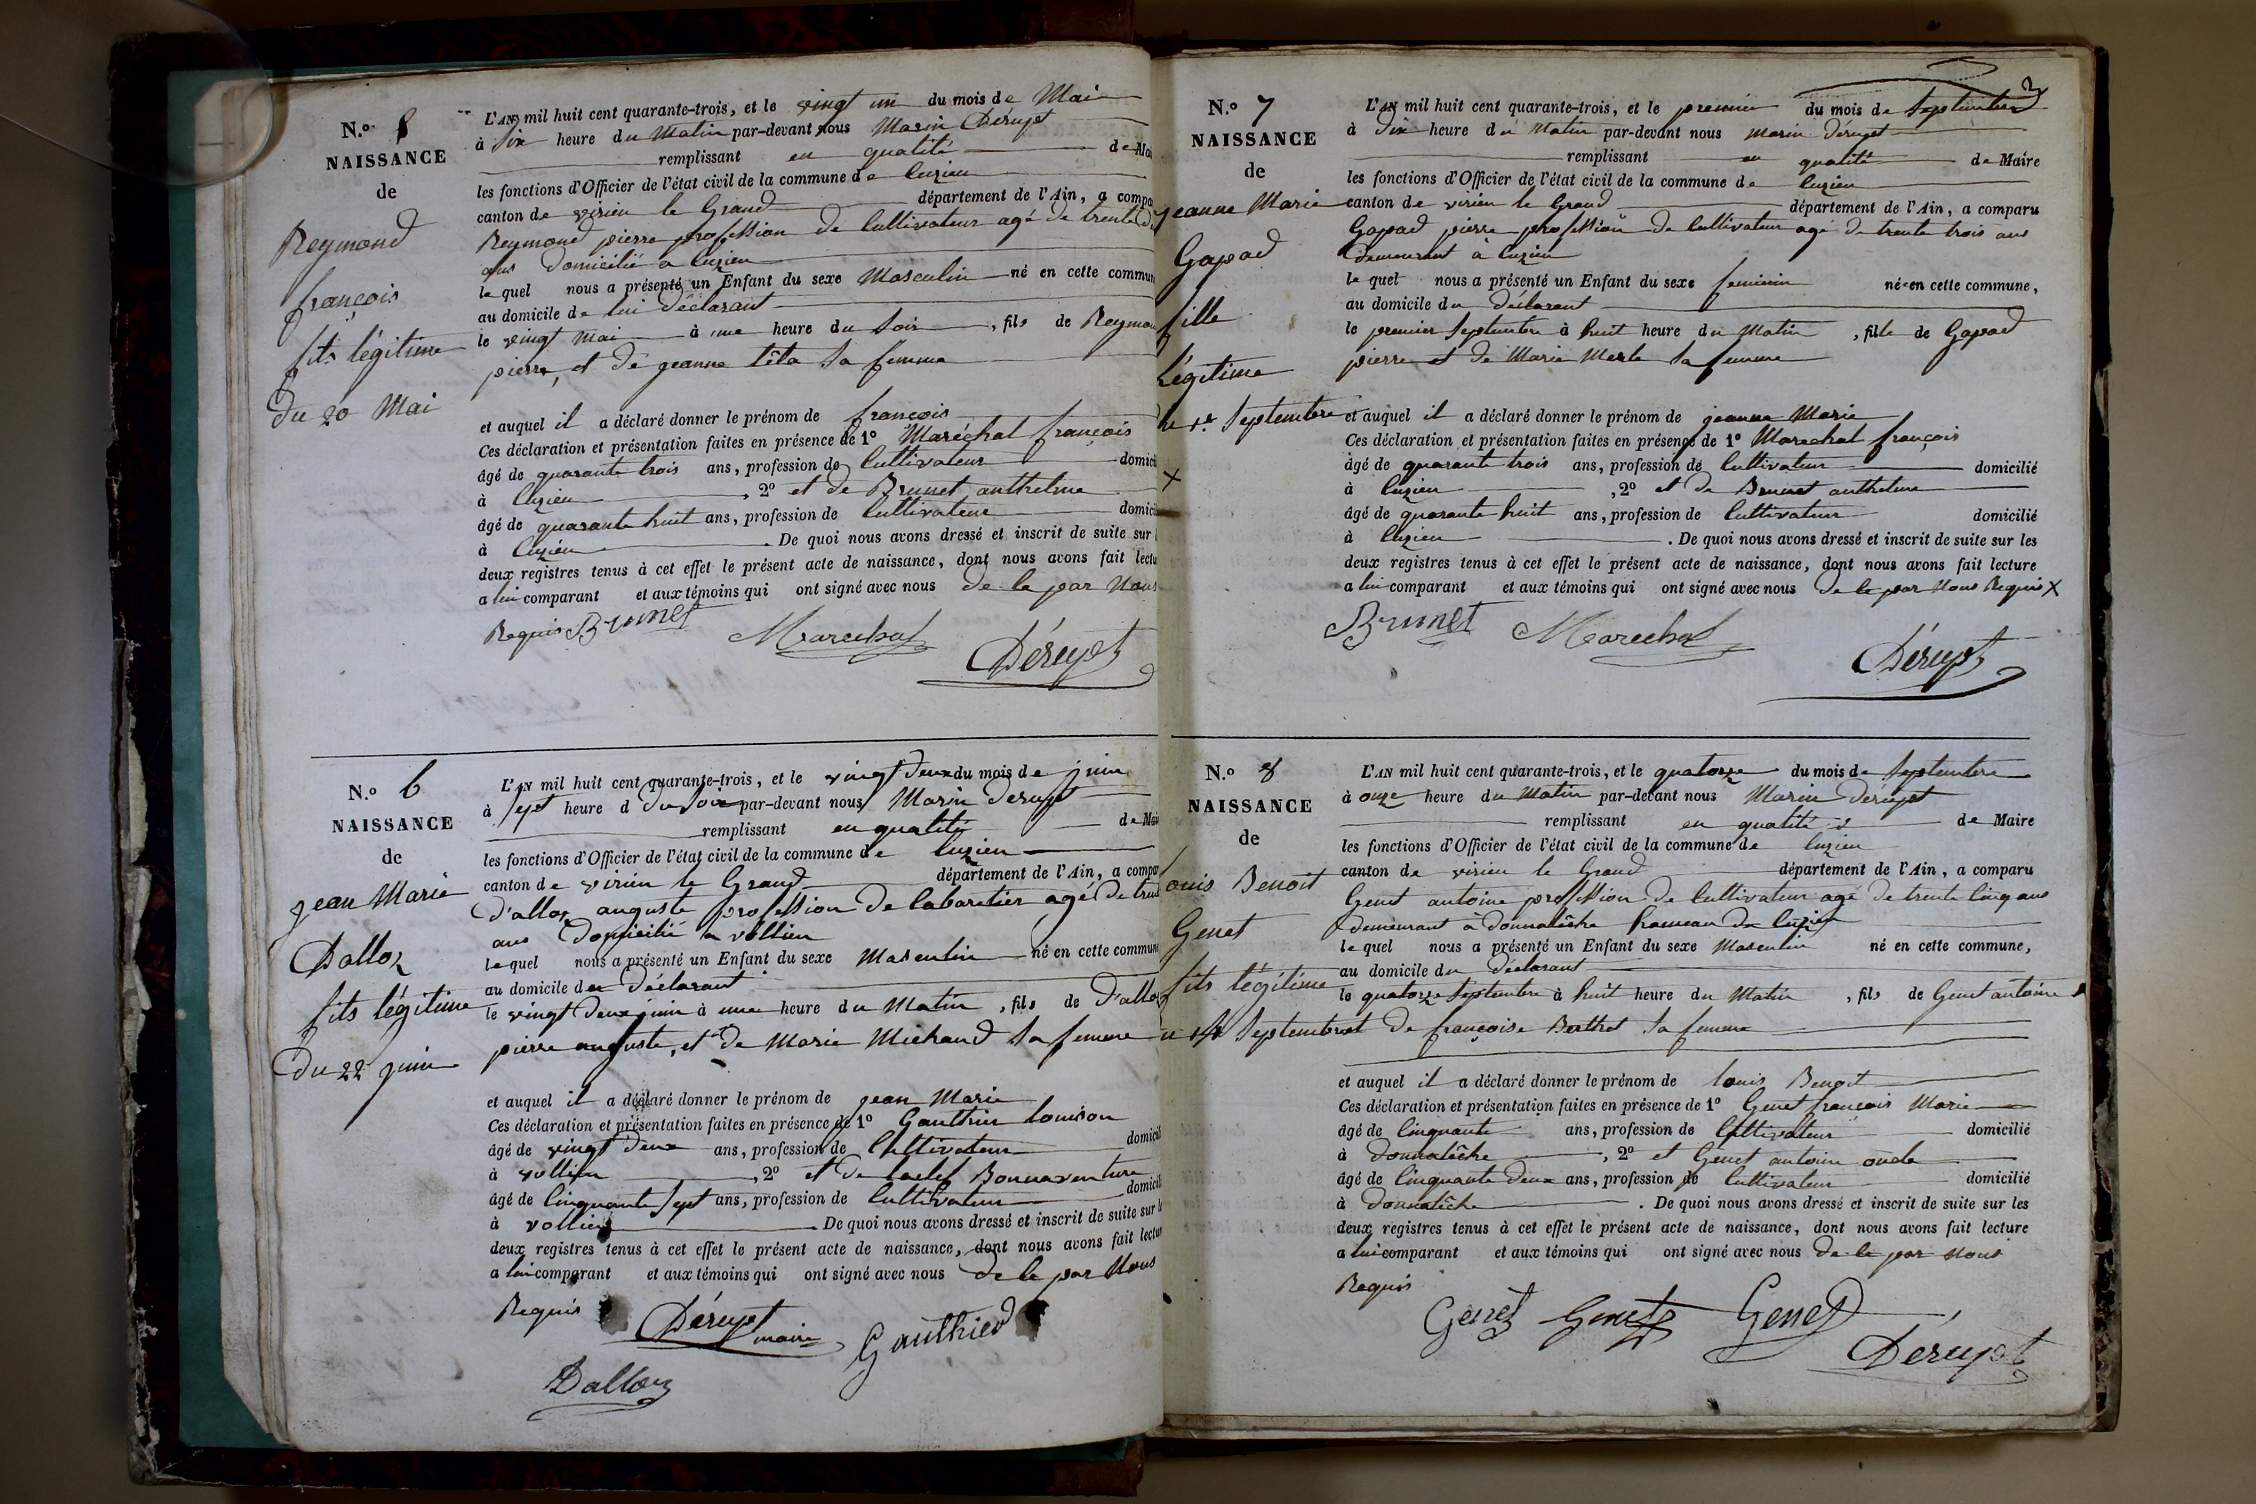 N.º 5
NAISSANCE
de
Reymond
françois
fils légitime
Du 20 Mai
L'AN mil huit cent quarante-trois, et le vingt un du mois de Mai
à Six heure du Matin par-devant nous Marin Déruyet
remplissant en qualité de Mai
les fonctions d'Officier de l'état civil de la commune de luzieu
canton de virieu le Grand département de l'Ain, a compa
Reymond pierre profession de Cultivateur agé de trente
ans domicilié a luzieu
le quel nous a présenté un Enfant du sexe Masculin né en cette commun
au domicile de lui déclarant
le vingt Mai à une heure du Soir, fils de Reymon
pierre, et de jeanne têta sa femme
et auquel il a déclaré donner le prénom de françois
Ces déclaration et présentation faites en présence de 1º Maréchal françois
âgé de quarante trois ans, profession de Cultivateur domici
à luzieu, 2º et de Brunet anthelme
âgé de quarante huit ans, profession de Cultivateur domici
à luzieu. De quoi nous avons dressé et inscrit de suite sur
deux registres tenus à cet effet le présent acte de naissance, dont nous avons fait lectu
a lui comparant et aux témoins qui ont signé avec nous de le par Nous
Requis Brunet Marechal Déruyet
N.º 6
NAISSANCE
de
jean Marie
Dalloz
fils légitime
Du 22 juin
L'AN mil huit cent quarante-trois, et le vingt Deux du mois de juin
à Sept heure d du Soir par-devant nous Marin Deruyet
remplissant en qualité de Mai
les fonctions d'Officier de l'état civil de la commune de luzieu
canton de virieu le Grand département de l'Ain, a compa
D'alloz auguste profession de Cabaretier agé de trent
ans Domicilié a vollien
le quel nous a présenté un Enfant du sexe Masculin né en cette commun
au domicile du Déclarant
le vingt Deux juin à une heure du Matin, fils de D'alloz
pierre auguste, et de Marie Michaud sa femme
et auquel il a déclaré donner le prénom de jean Marie
Ces déclaration et présentation faites en présence de 1º Gauthier louison
âgé de vingt Deux ans, profession de Cultivateur domicili
à vollien, 2º et de Bonnaventure
âgé de Cinquante Sept ans, profession de Cultivateur domicili
à vollien. De quoi nous avons dressé et inscrit de suite sur l
deux registres tenus à cet effet le présent acte de naissance, dont nous avons fait lectu
a lui comparant et aux témoins qui ont signé avec nous de le par Nous
Requis Déruyet maire Gauthier
Dalloz
2
N.º 7
NAISSANCE
de
jeanne Marie
Gapad
fille
Légitime
du 1er Septembre
X
L'AN mil huit cent quarante-trois, et le premier du mois de Septembre
à Dix heure du Matin par-devant nous Marin Déruyet
remplissant en qualité de Maire
les fonctions d'Officier de l'état civil de la commune de luzieu
canton de virieu le Grand département de l'Ain, a comparu
Gapad pierre profession de Cultivateur agé de trente trois ans
demeurant à luzieu
le quel nous a présenté un Enfant du sexe feminin né en cette commune,
au domicile du déclarant
le premier Septembre à huit heure du Matin, fille de Gapad
pierre et de Marie Merle sa femme
et auquel il a déclaré donner le prénom de jeanne Marie
Ces déclaration et présentation faites en présence de 1º Marechal françois
âgé de quarante trois ans, profession de Cultivateur domicilié
à luzieu, 2º et de Brunet anthelme
âgé de quarante huit ans, profession de Cultivateur domicilié
à luzieu. De quoi nous avons dressé et inscrit de suite sur les
deux registres tenus à cet effet le présent acte de naissance, dont nous avons fait lecture
a lui comparant et aux témoins qui ont signé avec nous de le par Nous Requis X
Brunet Marechal Déruyet
N.º 8
NAISSANCE
de
Louis Benoit
Genet
fils légitime
du 14 Septembre
L'AN mil huit cent quarante-trois, et le quatorze du mois de Septembre
à onze heure du Matin par-devant nous Marin Déruyet
remplissant en qualité de Maire
les fonctions d'Officier de l'état civil de la commune de luzieu
canton de virieu le Grand département de l'Ain, a comparu
Genet antoine profession de Cultivateur agé de trente Cinq ans
demeurant à donnalêche hameau de luzieu
le quel nous a présenté un Enfant du sexe Masculin né en cette commune,
au domicile du Déclarant
le quatorze Septembre à huit heure du Matin, fils de Genet antoine
et de françoise Berthet sa femme
et auquel il a déclaré donner le prénom de louis Benoit
Ces déclaration et présentation faites en présence de 1º Genet françois Marie
âgé de Cinquante ans, profession de Cultivateur domicilié
à donnalêche, 2º et Genet antoine oncle
âgé de Cinquante deux ans, profession de Cultivateur domicilié
à donnalêche. De quoi nous avons dressé et inscrit de suite sur les
deux registres tenus à cet effet le présent acte de naissance, dont nous avons fait lecture
a lui comparant et aux témoins qui ont signé avec nous de le par Nous
Requis
Genet Genet Genet
Déruyet